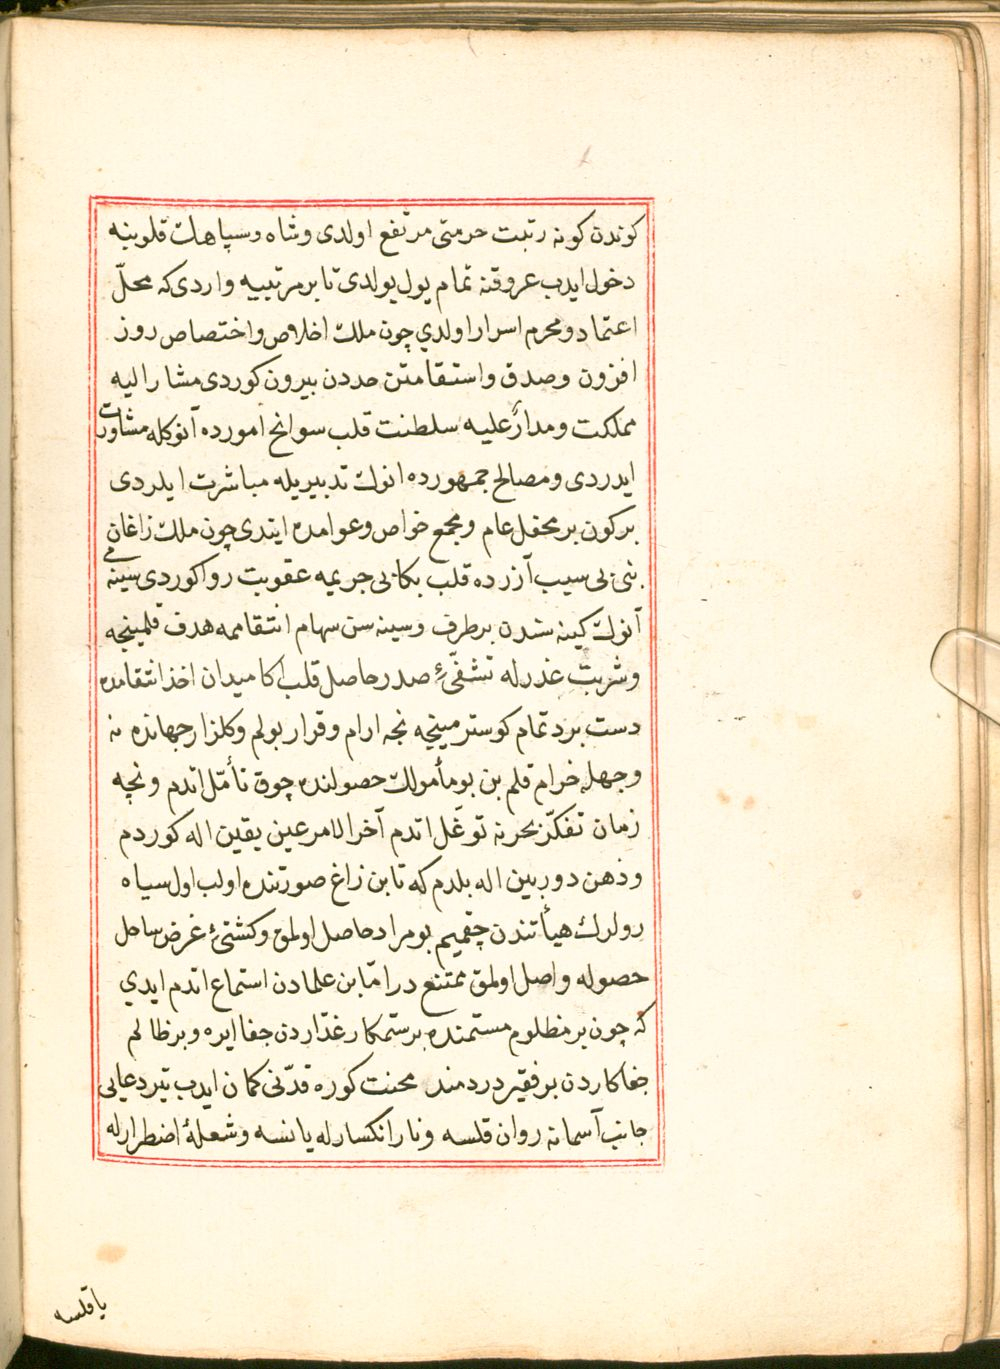 كوندن كونه رتبت حرمتى مرتفع اولدى وشاه وسپاهك قلوبنه
دخول ايدب عروقنه تمام يول بولدى تا بر مرتبييه واردى كه محلّ
اعتماد ومحرم اسرار اولدي چون ملك اخلاص واختصاص روز
افزون وصدق واستقامتن حددن بيرون كوردى مشار اليه
مملكت ومدارٌ عليه سلطنت قلب سوانح امورده آنوكله مشاورت
ايدردى ومصالح جمهورده انوك تدبيريله مباشرت ايلردى
بر كون بر محفل عام ومجمع خواص وعوامده ايتدى چون ملك زاغان
بنى بى سبب آزرده قلب بكا بى جريمه عقوبت روا كوردى سينه مى
آنوك كينه سندن بر طرف وسينه سن سهام انتقاممه هدف قلمينجه
وشربت عذرله تشفّىٔ صدر حاصل قلب اكا ميدان اخذ انتقامده
دست برد تمام كوسترمينجه نجه ارام وقرار بولم وكلزار جهانده نه
وجهله خرام قلم بن بو مأمولك حصولنده چوق تأمّل اتدم ونچه
زمان تفكّر بحرنه توغّل اتدم آخر الامر عين يقين اله كوردم
وذهن دوربين اله بلدم كه تا بن زاغ صورتنده اولب اول سياه
رولرك هيأتندن چقميم بو مراد حاصل اولمق وكشتئ غرض ساحل
حصوله واصل اولمق ممتنع در امّا بن علمادن استماع اتدم ايدي
كه چون بر مظلوم مستمنده بر ستمكار غدّاردن جفا ايره وبر ظالم
جفاكاردن بر فقير دردمند محنت كوره قدّنى كمان ايدب تير دعايى
جانب آسمانه روان قلسه ونار انكسارله يانسه وشعلهٔ اضطرارله
ياقلسه